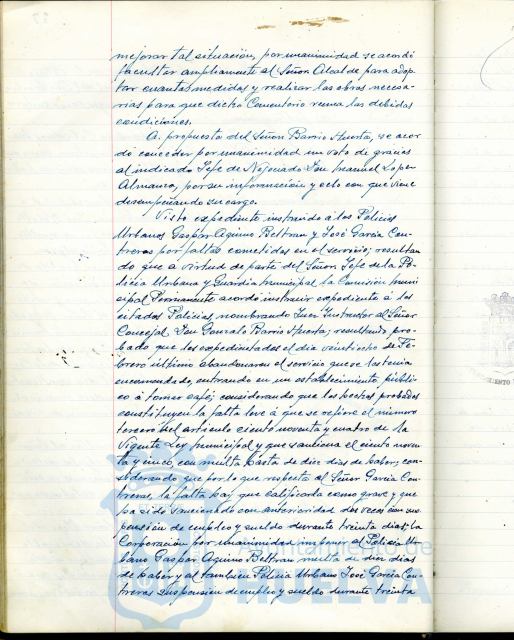 mejorar tal situación, por unanimidad se acordó
facultar ampliamente al Señor Alcalde para adop-
tar cuantas medidas y realizar las obras necesa-
rias para que dicho Cementerio reuna las debidas
condiciones.
A propuesta del Señor Barrio Huerta, se acor
dó conceder por unanimidad un voto de gracias
al indicado Jefe de Negociado Don Manuel Lopez
Almanza, por su información y celo con que viene
desempeñando su cargo.
Visto expediente instruido á los Policias
Urbanos Gaspar Aquino Beltran y José Garcia Con-
treras por faltas cometidas en el servicio; resultan
do que á virtud de parte del Señor Jefe de la Po-
licia Urbana y Guardia municipal la Comisión muni
cipal Permanente acordó instruir expediente á los
citados Policias, nombrando Juez Instructor al Señor
Concejal Don Gonzalo Barrio Huerta; resultando pro-
bado que los expedientados el dia veintiocho de Fe-
brero último abandonaron el servicio que se les tenia
encomendado, entrando en un establecimiento públi-
co á tomar café; considerando que los hechos probados
constituyen la falta leve á que se refiere el número
tercero del articulo ciento noventa y cuatro de la
Vigente Ley municipal y que sanciona el ciento noven
ta y cinco, con multa hasta de diez dias de haber; con-
siderando que por lo que respecta al Señor Garcia Con-
treras, la falta hay que calificarla como grave y que
ha sido sancionado con anterioridad dos veces con sus
pensión de empleo y sueldo durante treinta dias; la
Corporación por unanimidad imponer al Policia Ur-
bano Gaspar Aquino Beltran multa de diez dias
de haber y al tambien Policia Urbano José Garcia Con-
treras suspensión de empleo y sueldo durante treinta
Ayuntamiento de
HUELVA